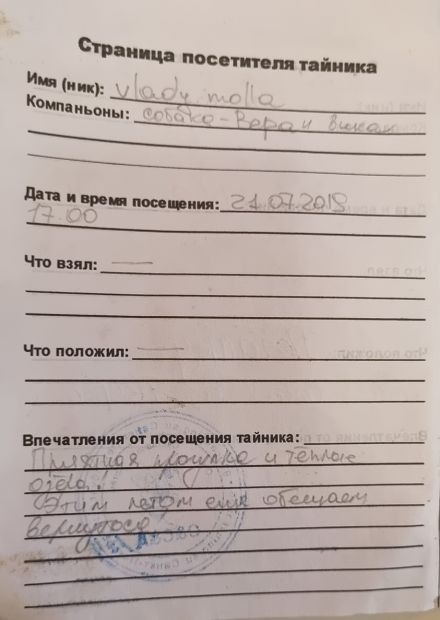 Страница посетителя тайника
Имя (ник): vlady.molla
Компаньоны: собака-Вера и
Дата и время посещения: 21.07.2019
17.00
Что взял: —
Что положил: —
Впечатления от посещения тайника:
Приятная прогулка и теплые
озера.
Этим летом еще обещаем
вернуться